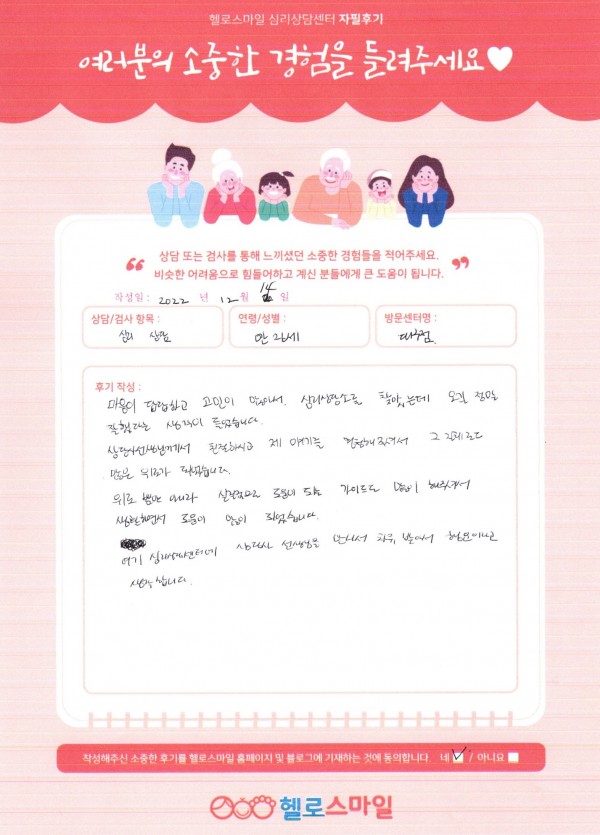 헬로스마일 심리상담센터 자필후기
여러분의 소중한 경험을 들려주세요
상담 또는 검사를 통해 느끼셨던 소중한 경험들을 적어주세요.
비슷한 어려움으로 힘들어하고 계신 분들에게 큰 도움이 됩니다.
작성일 : 2022 년 12 월 14 일
상담/검사 항목 :
심리 상담
연령/성별 :
만 21세
방문센터명 :
후기 작성 :
마음이 답답하고 고민이 많아서 심리상담소를 찾았는데 오길 정말
잘했다는 생각이 들었습니다.
상담사선생님께서 친절하시고 제 얘기를 경청해주셔서 그 자체로도
많은 위로가 되었습니다.
위로 뿐만 아니라 실질적으로 도움이 되는 가이드도 많이 해주셔서
생활하면서 도움이 많이 되었습니다.
여기 심리상담센터에 상담사 선생님을 만나서 행운이라고
생각합니다.
작성해주신 소중한 후기를 헬로스마일 홈페이지 및 블로그에 기재하는 것에 동의합니다. 네 / 아니요
헬로스마일